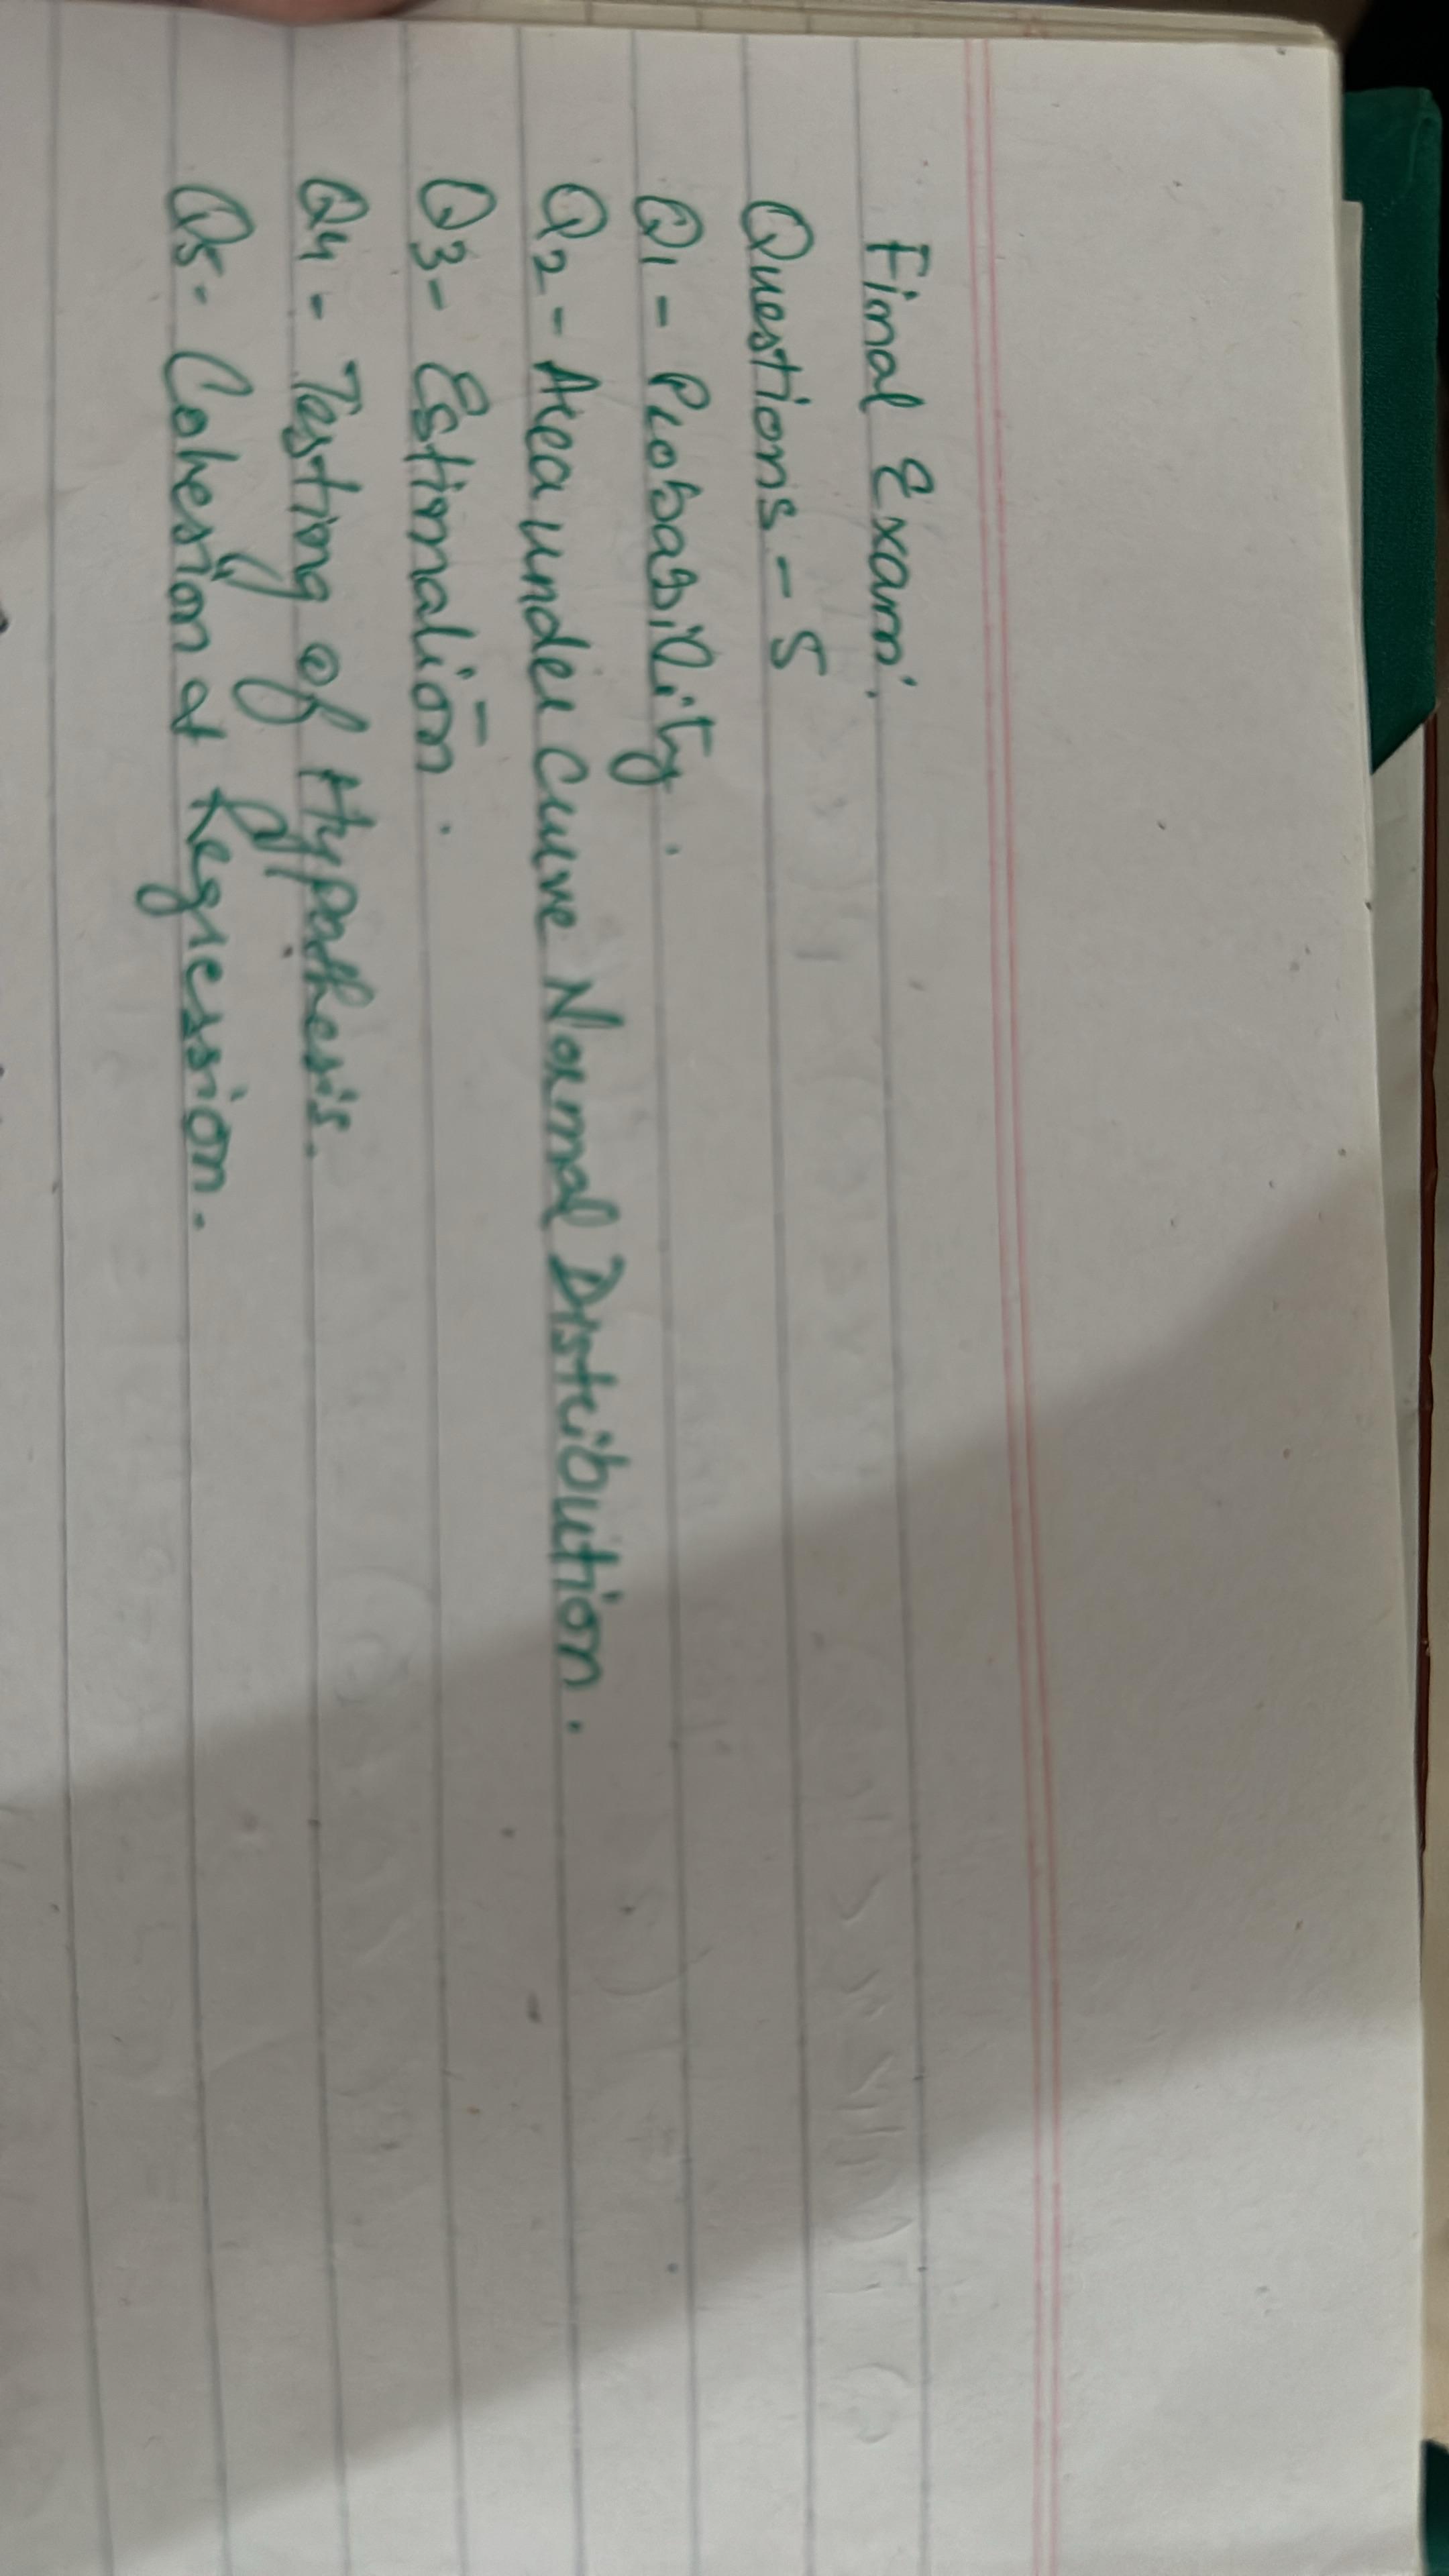 Final Exam:
Questions - 5
Q1 - Probability.
Q2 - Area under Curve Normal Distribution.
Q3 - Estimation.
Q4 - Testing of Hypothesis.
Q5 - Cohesion & Regression.